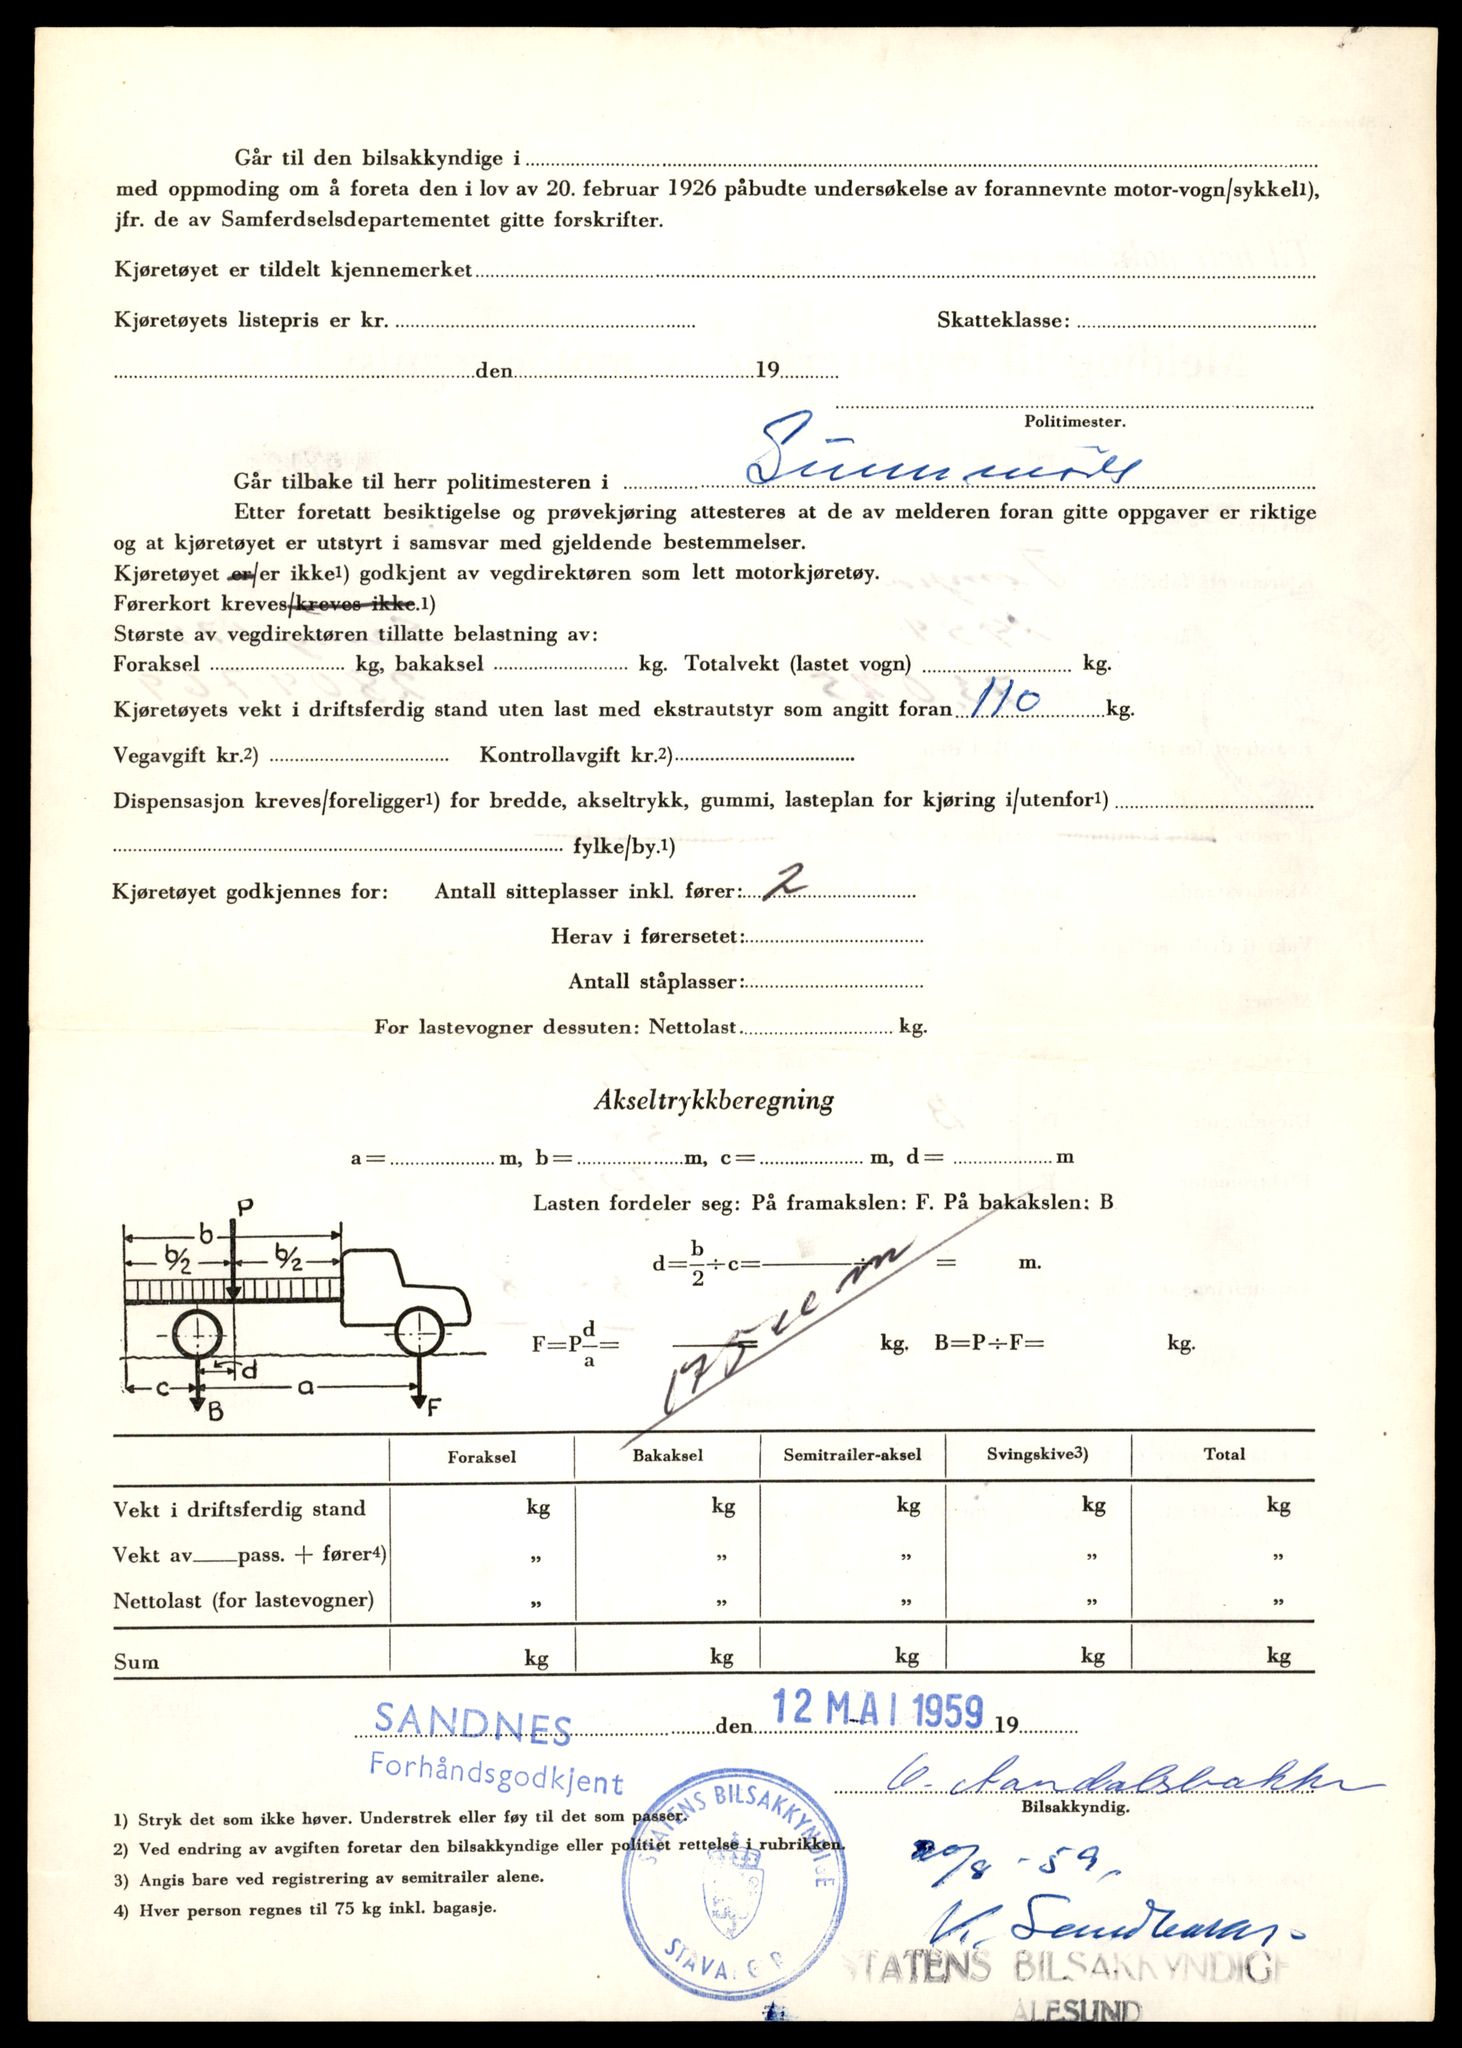 Går til den bilsakkyndige i
med oppmoding om å foreta den i lov av 20. februar 1926 påbudte undersøkelse av forannevnte motor-vogn/sykkel1),
jfr. de av Samferdselsdepartementet gitte forskrifter.
Kjøretøyet er tildelt kjennemerket
Kjøretøyets listepris er kr. Skatteklasse:
den 19
Politimester.
Går tilbake til herr politimesteren i Sunnmöre
Etter foretatt besiktigelse og prøvekjøring attesteres at de av melderen foran gitte oppgaver er riktige
og at kjøretøyet er utstyrt i samsvar med gjeldende bestemmelser.
Kjøretøyet er/er ikke1) godkjent av vegdirektøren som lett motorkjøretøy.
Førerkort kreves/kreves ikke.1)
Største av vegdirektøren tillatte belastning av:
Foraksel kg, bakaksel kg. Totalvekt (lastet vogn) kg.
Kjøretøyets vekt i driftsferdig stand uten last med ekstrautstyr som angitt foran 110 kg.
Vegavgift kr.2) Kontrollavgift kr.2)
Dispensasjon kreves/foreligger1) for bredde, akseltrykk, gummi, lasteplan for kjøring i/utenfor1)
fylke/by.1)
Kjøretøyet godkjennes for: Antall sitteplasser inkl. fører: 2
Herav i førersetet:
Antall ståplasser:
For lastevogner dessuten: Nettolast kg.
Akseltrykkberegning
a= m, b= m, c= m, d= m
Lasten fordeler seg: På framakslen: F. På bakakslen: B
P
b
b/2 b/2
d=b/2÷c= ÷ = m.
F=P d/a= kg. B=P÷F= kg.
175 ccm
c B d a F
Foraksel Bakaksel Semitrailer-aksel Svingskive3) Total
Vekt i driftsferdig stand kg kg kg kg kg
Vekt av pass. + fører4) „ „ „ „ „
Nettolast (for lastevogner) „ „ „ „ „
Sum kg kg kg kg kg
SANDNES den 12 MAI 1959 19
Forhåndsgodkjent
Bilsakkyndig.
1) Stryk det som ikke høver. Understrek eller føy til det som passer.
2) Ved endring av avgiften foretar den bilsakkyndige eller politiet rettelse i rubrikken.
3) Angis bare ved registrering av semitrailer alene.
4) Hver person regnes til 75 kg inkl. bagasje.
STATENS BILSAKKYNDIGE
20/8-59.
TATENS BILSAKKYNDIGE
ÅLESUND